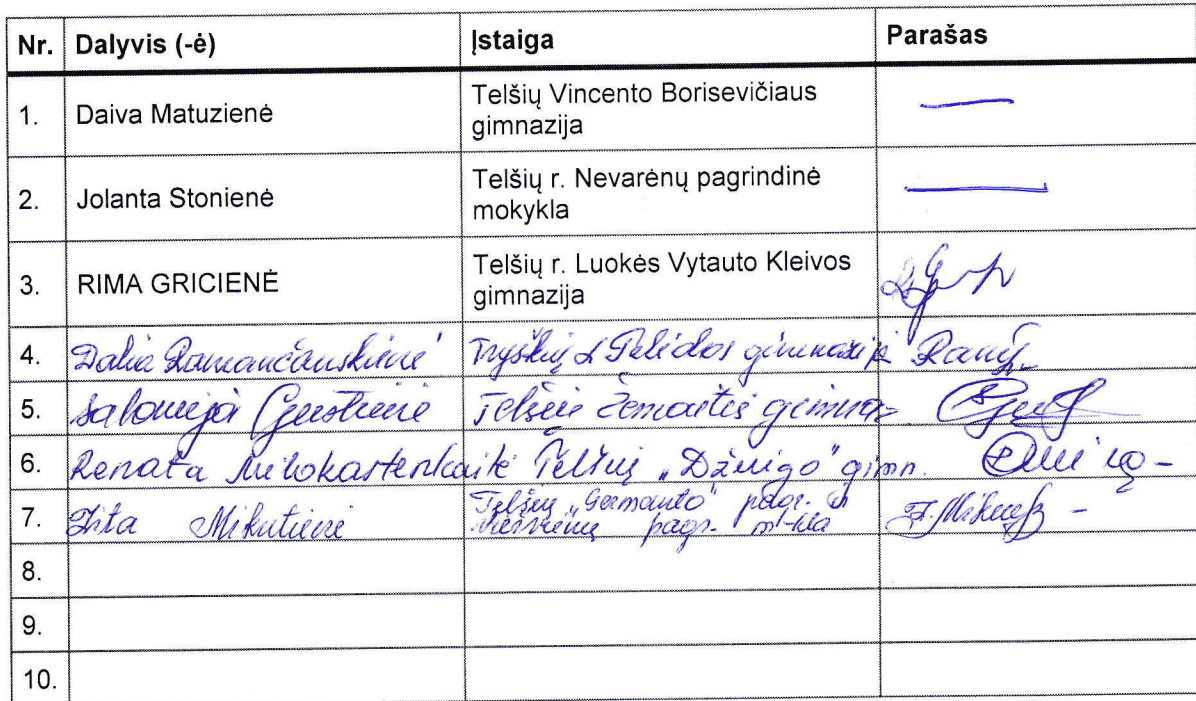 Nr. Dalyvis (-ė) Įstaiga Parašas
1. Daiva Matuzienė Telšių Vincento Borisevičiaus
gimnazija
2. Jolanta Stonienė Telšių r. Nevarėnų pagrindinė
mokykla
3. RIMA GRICIENĖ Telšių r. Luokės Vytauto Kleivos
gimnazija
4. Dalia Ramančauskienė Tryškių L. Pelėdos gimnazija
5. Salomėja Telšių Žemaitės gimnaz.
6. Renata Milokastenkaitė Telšių „Džiugo" gimn.
7. Zita Mikutienė Telšių „Germanto" pagr. ir
Viešvėnų pagr. m-kla
8.
9.
10.